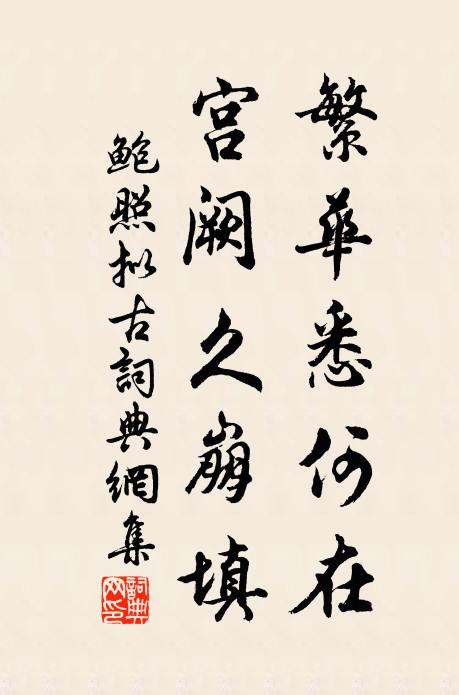 繁華悉何在
宫阙久崩填
鲍照拟古詞典網集
詞典網印